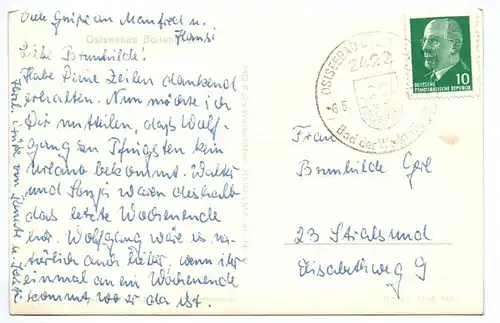 Viele Grüße an Manfred u.
Hansi
Ostseebad Bolten
Liebe Brunhilde!
Habe Deine Zeilen dankend
erhalten. Nun möchte ich
Dir mitteilen, daß Wolf-
gang zu Pfingsten kein
Urlaub bekommt. Walter
und Sonja waren deshalb
das letzte Wochenende
hier. Wolfgang wäre es na-
türlich auch lieber, wenn ihr
einmal an ein Wochenende
kommt, wo er da ist.
Herzl. Grüße von
OSTSEEBAD
2422
-6.5
Bad der Werktätigen
10
DEUTSCHE
DEMOKRATISCHE REPUBLIK
Frau
Brunhilde
23 Stralsund
Elisabethweg 9